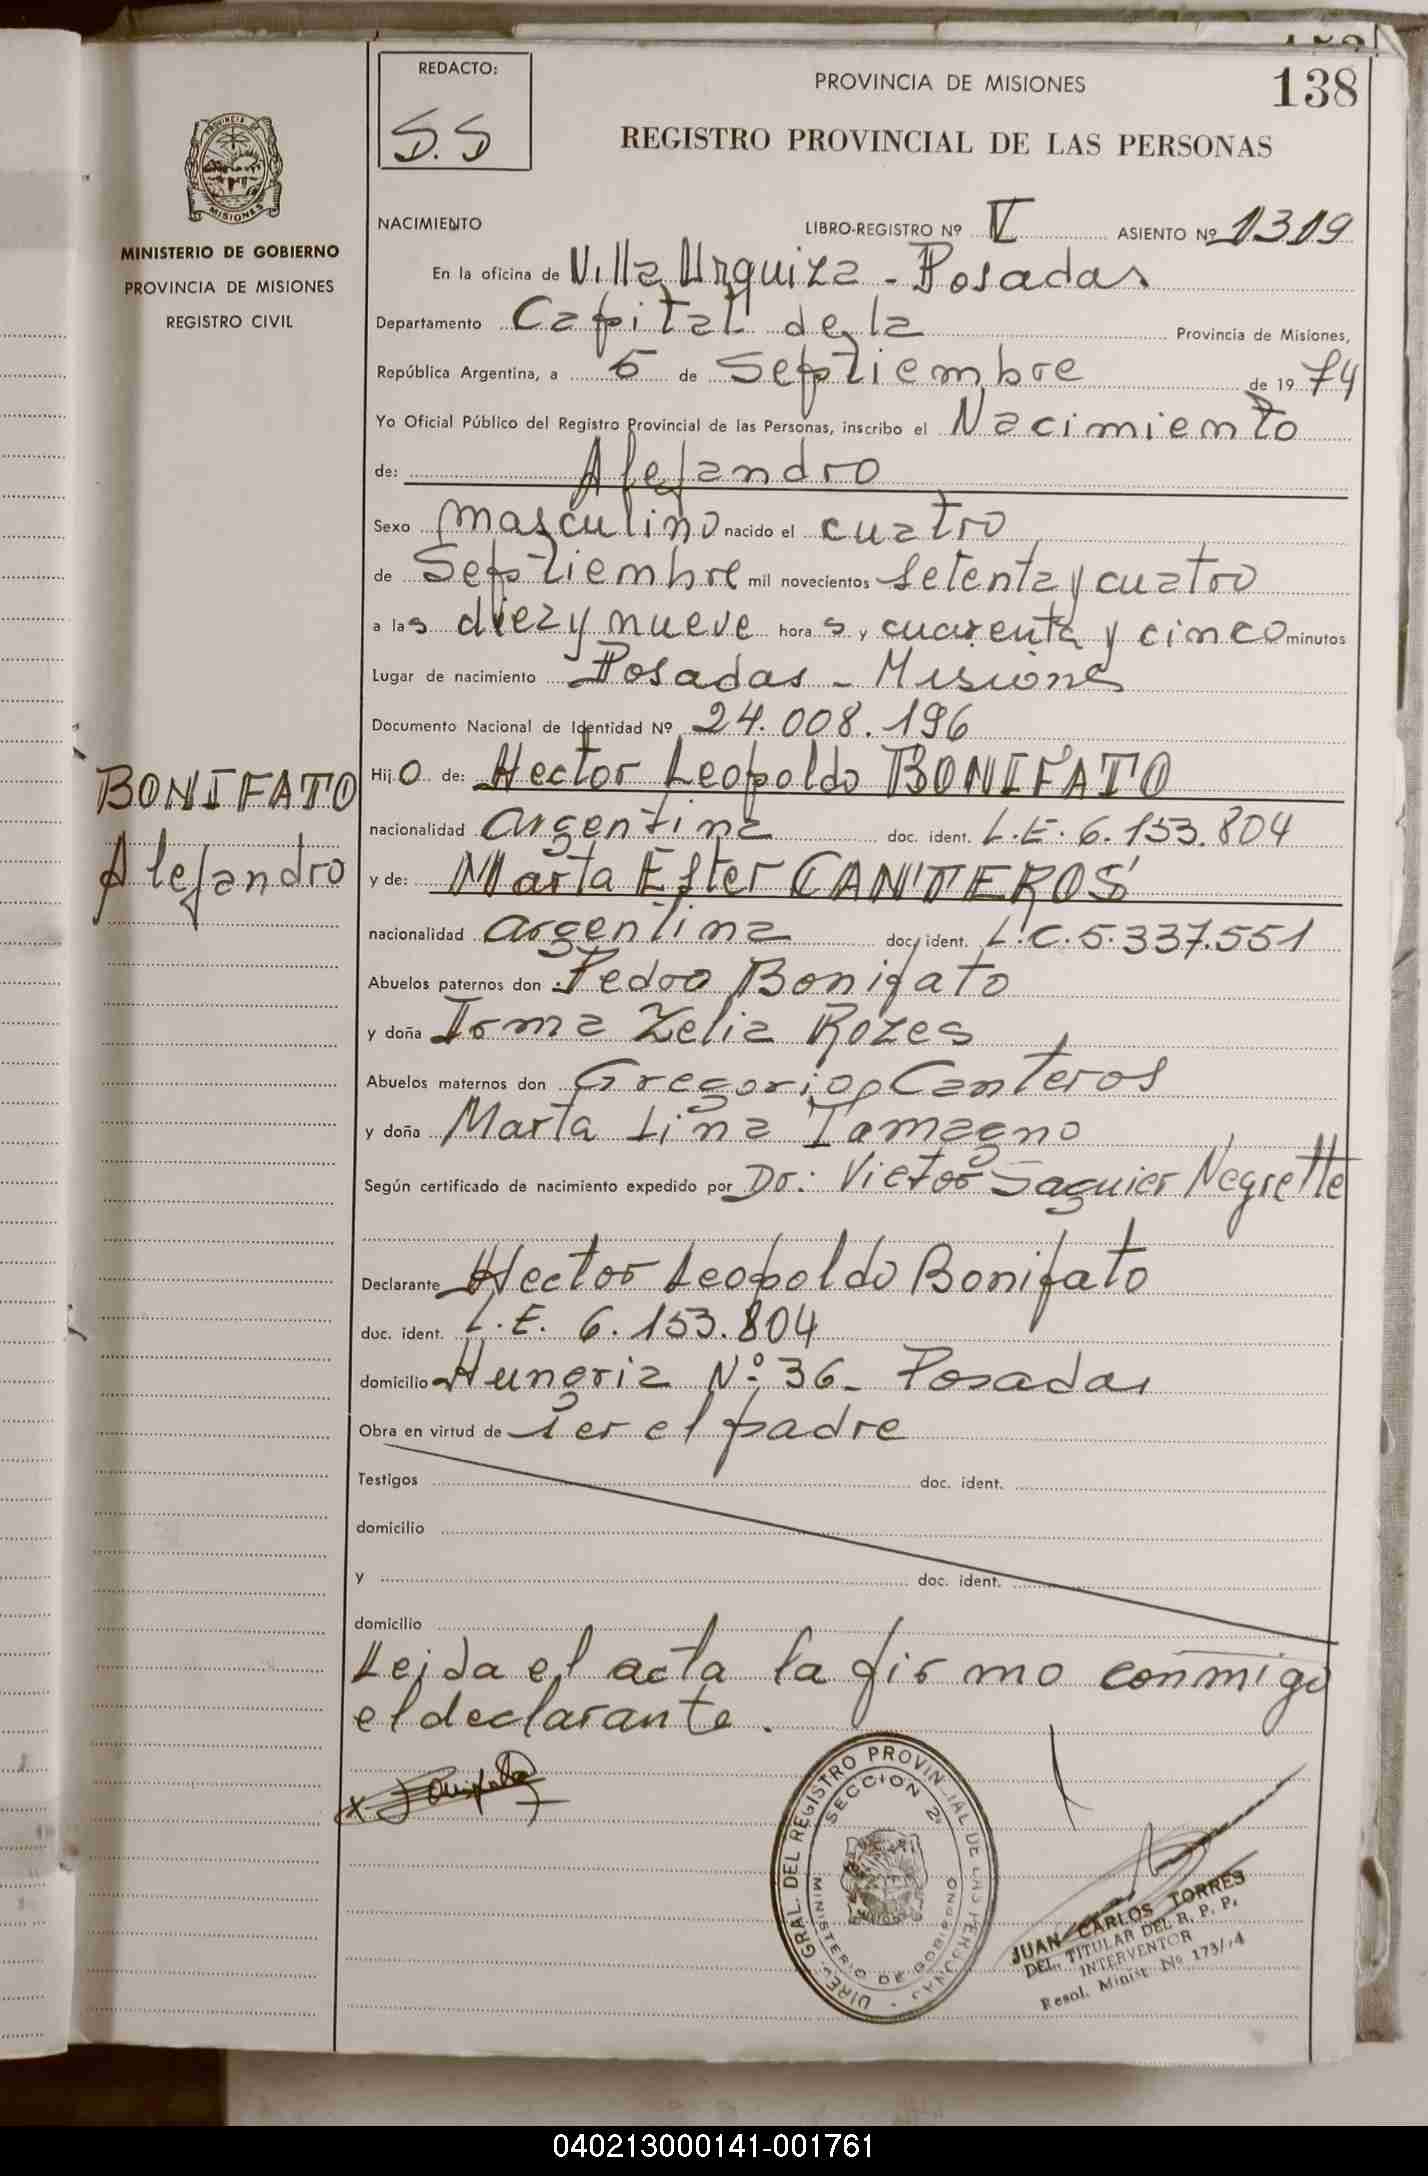 138
REDACTO:
S.S
PROVINCIA DE MISIONES
REGISTRO PROVINCIAL DE LAS PERSONAS
PROVINCIA DE
MISIONES
MINISTERIO DE GOBIERNO
PROVINCIA DE MISIONES
REGISTRO CIVIL
NACIMIENTO LIBRO-REGISTRO Nº V ASIENTO Nº 1319
En la oficina de Villa Urquiza - Posadas
Departamento Capital de la Provincia de Misiones,
República Argentina, a 5 de Septiembre de 1974
Yo Oficial Público del Registro Provincial de las Personas, inscribo el Nacimiento
de: Alejandro
Sexo masculino nacido el cuatro
de Septiembre mil novecientos setenta y cuatro
a las diez y nueve horas y cuarenta y cinco minutos
Lugar de nacimiento Posadas - Misiones
Documento Nacional de Identidad Nº 24.008.196
BONIFATO
Alejandro
Hijo de: Hector Leopoldo BONIFATO
nacionalidad argentina doc. ident. L.E. 6.153.804
y de: Marta Ester CANTEROS
nacionalidad argentina doc. ident. L.C. 5.337.551
Abuelos paternos don Pedro Bonifato
y doña Irma Zelia Rozes
Abuelos maternos don Gregorio Canteros
y doña Marta Lina Tamagno
Según certificado de nacimiento expedido por Dr: Victor Saguier Negrette
Declarante Hector Leopoldo Bonifato
doc. ident. L.E. 6.153.804
domicilio Hungria Nº 36 - Posadas
Obra en virtud de ser el padre
Testigos doc. ident.
domicilio
y doc. ident.
domicilio
Leida el acta la firmo conmigo
el declarante.
DIREC. GRAL. DEL REGISTRO PROVINCIAL DE LAS PERSONAS
SECCION 2ª
MINISTERIO DE GOBIERNO
JUAN CARLOS TORRES
DEL. TITULAR DEL R. P. P.
INTERVENTOR
Resol. Minist. Nº 173/74
040213000141-001761